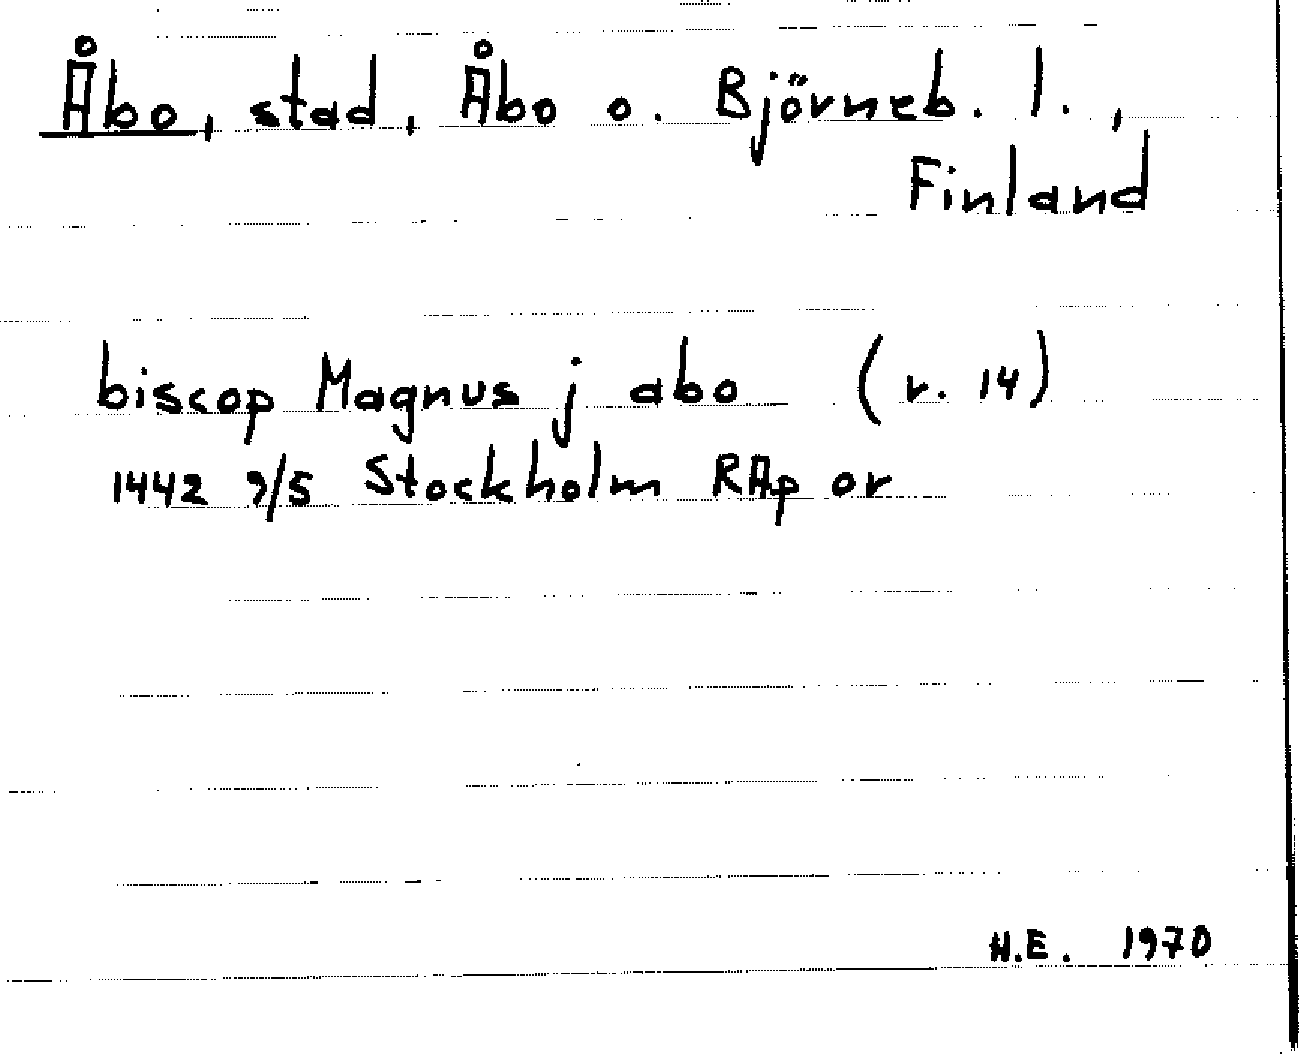 Åbo, stad, Åbo o. Björneb. l.,
Finland
biscop Magnus j abo (r. 14)
1442 9/5 Stockholm RAp or
H.E. 1970